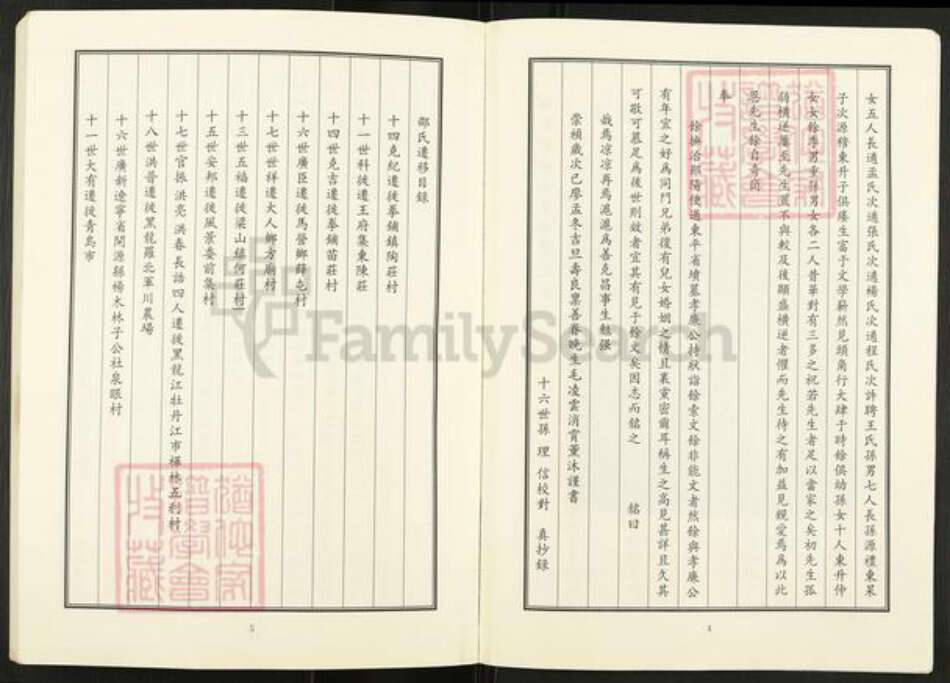 女五人長適孟氏次適張氏次適楊氏次適程氏次許聘王氏孫男七人長孫源禮東杲
子次源穆東升子俱廩生富于文學嶄然見頭角行大肆于時餘俱幼孫女十人東升仲
女女餘詹男重孫男女各二人昔華對有三多之祝若先生者足以當家之矣初先生孤
弱橫逆屢至先生置不與較及後顯盛橫逆者懼而先生待之有加益見親愛焉為以此
恩先生餘自奇
奉
餘撫治鄖陽便過東平省墳墓孝廉公持狀詣餘索文餘非能文者然餘與孝廉公
有年宜之好為同門兄弟復有兒女婚姻之情且裏黨密爾耳稱生之高見甚詳且久其
可敬可慕足為後世則效者宜其有見于餘文矣因志而銘之 銘曰
哉焉凉凉再焉滬滬為善克昌事生勉强
崇禎歲次己廖孟冬吉旦壽良禀善眷晚生毛凌雲消霄董沐謹書
十六世孫 理 信校對 真抄録
4
鄒氏遷移目録
十四克紀遷徙拳鋪鎮陶莊村
十一世科徙遷王府集東陳莊
十四世克吉遷徙拳鋪苗莊村
十六世廣臣遷徙馬營鄉薛屯村
十七世世祥遷大人鄉方廟村
十三世五福遷徙梁山鎮何莊村
十五世安邦遷徙風景娄前集村
十七世官振 洪亮 洪春 長語四人遷徙黑龍江牡丹江市樺林五利村
十八世洪普遷徙黑龍羅北軍川農場
十六世廣新遼寧省開源縣楊木林子公社泉眼村
十一世大有遷徙青島市
5
FamilySearch